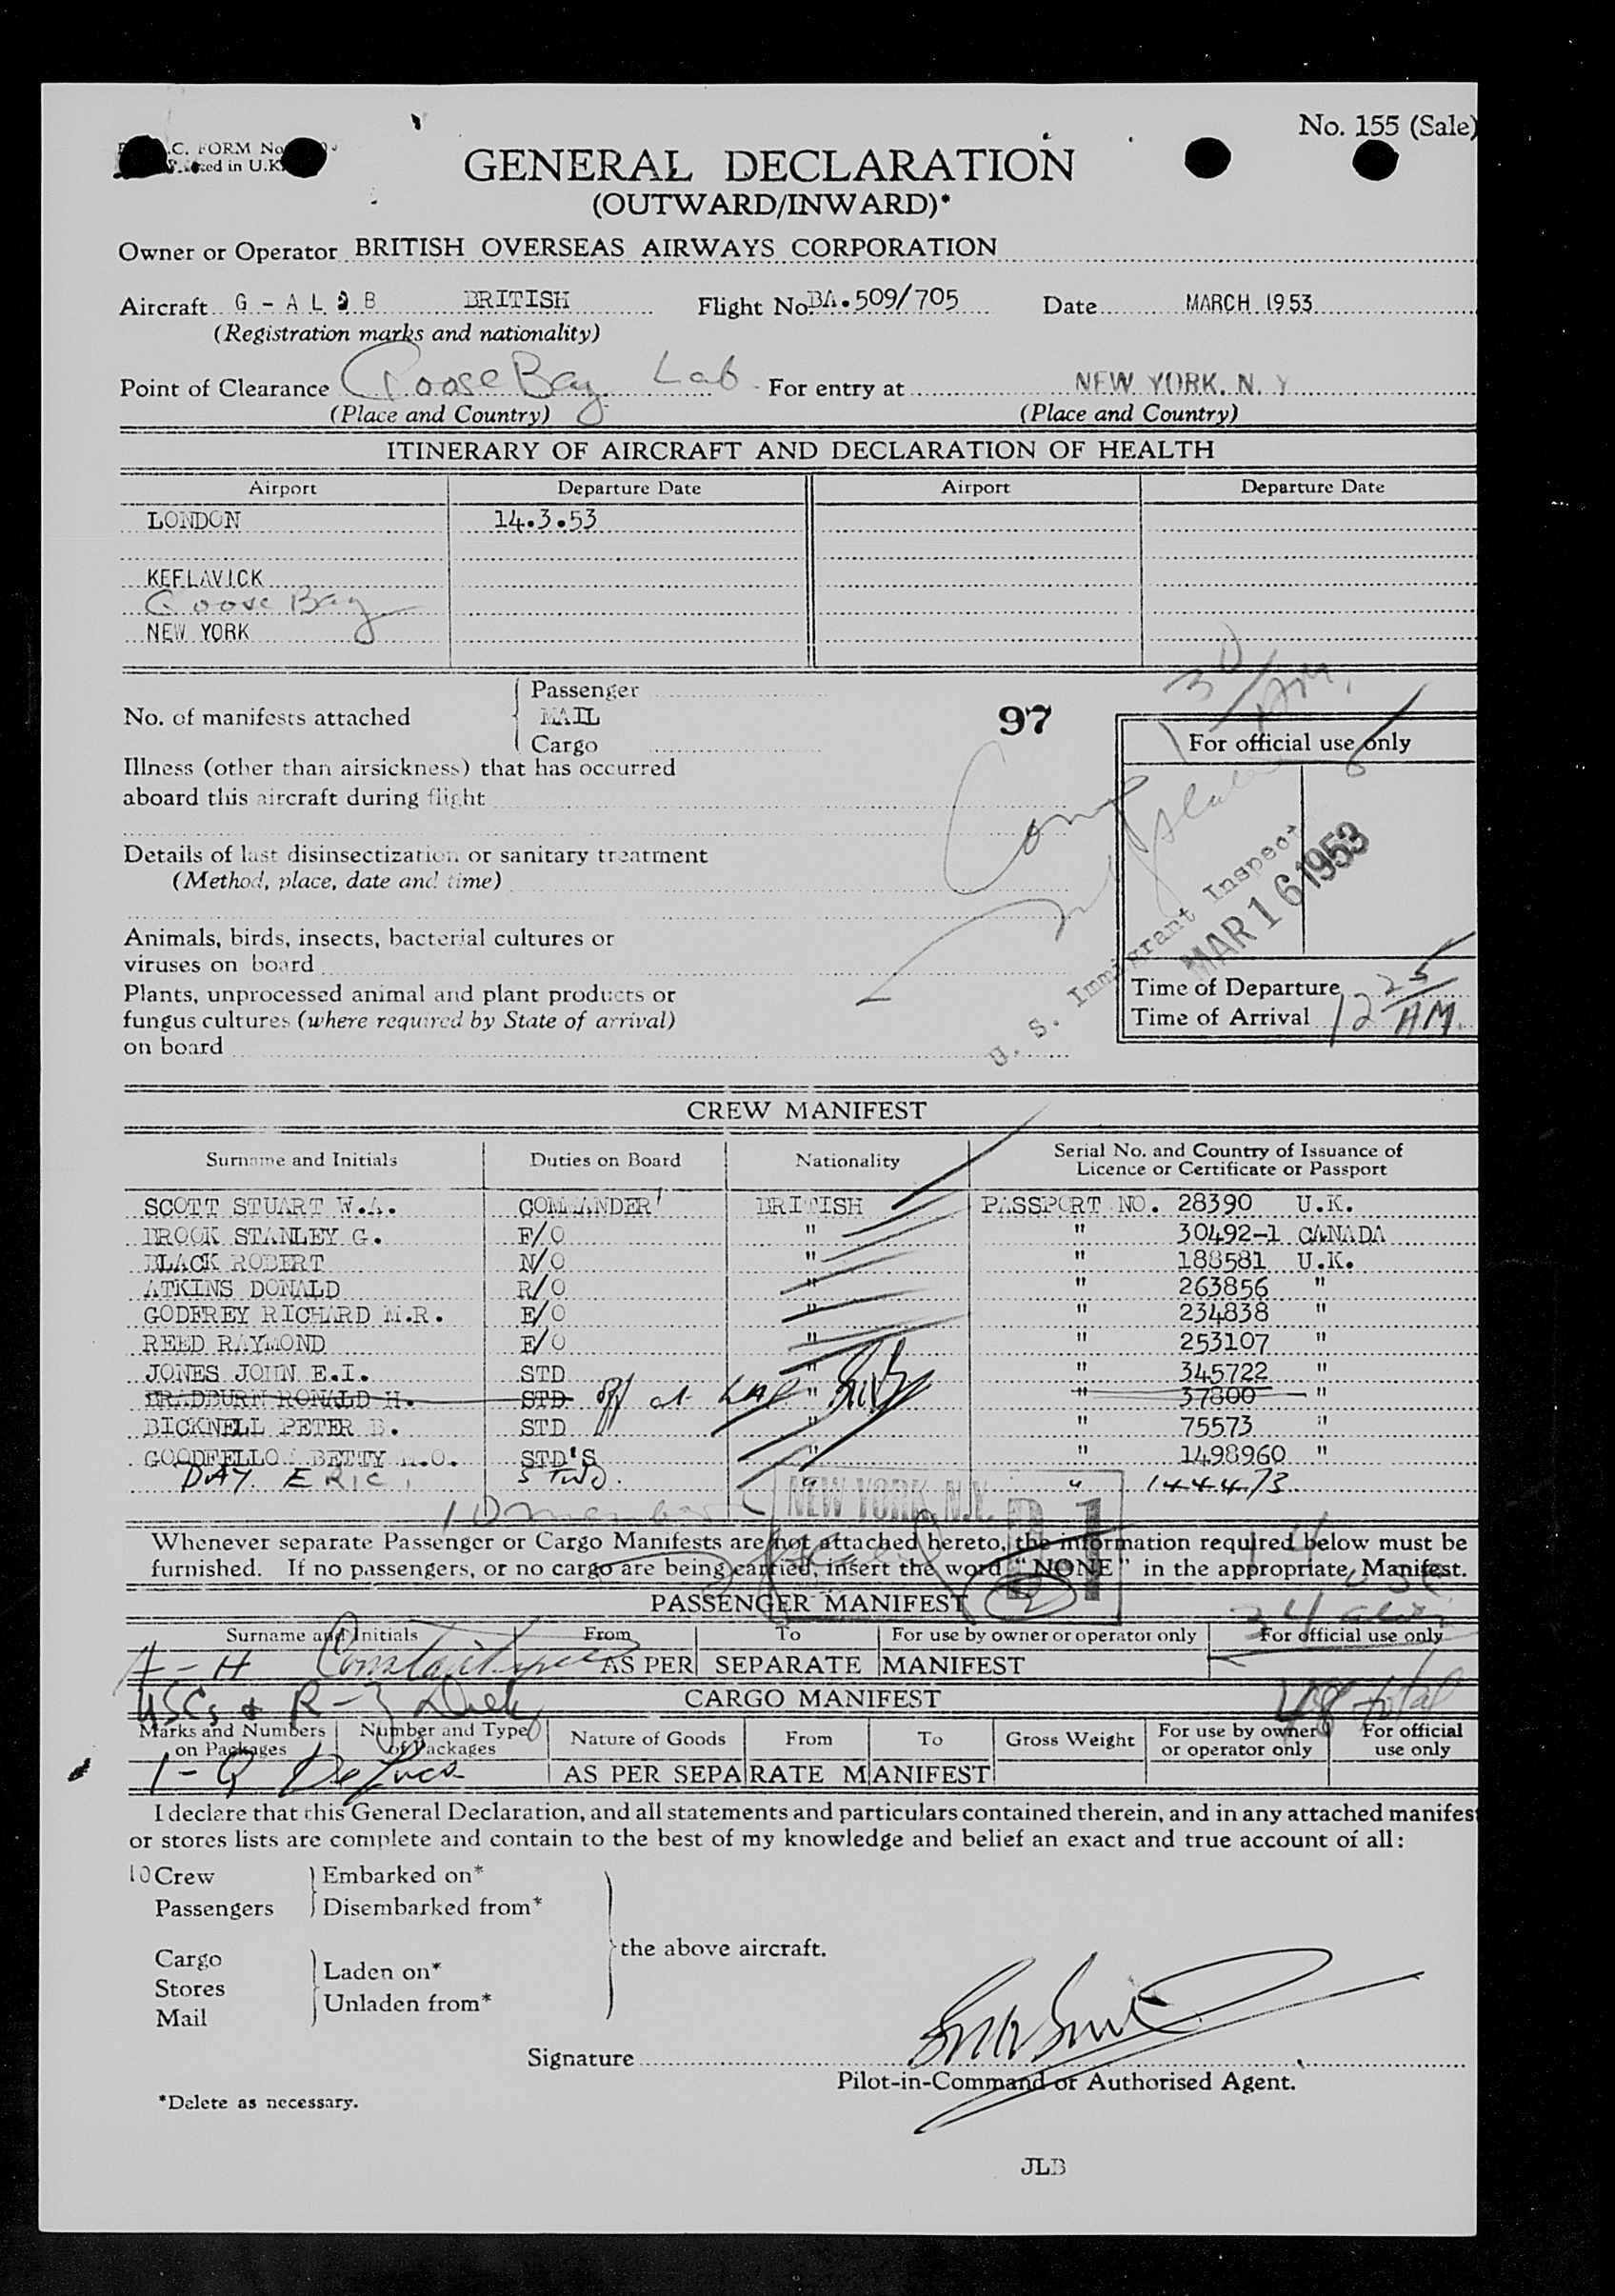 No. 155 (Sale)
GENERAL DECLARATION
(OUTWARD/INWARD)*
Owner or Operator BRITISH OVERSEAS AIRWAYS CORPORATION
Aircraft G - A L B BRITISH Flight No. BA. 509/705 Date MARCH 1953
(Registration marks and nationality)
Point of Clearance Goose Bay Lab For entry at NEW YORK. N. Y
(Place and Country) (Place and Country)
ITINERARY OF AIRCRAFT AND DECLARATION OF HEALTH
Airport Departure Date Airport Departure Date
LONDON 14.3.53
KEFLAVICK
Goose Bay
NEW YORK
No. of manifests attached
Passenger
MAIL
Cargo
97
Illness (other than airsickness) that has occurred
aboard this aircraft during flight
Details of last disinsectization or sanitary treatment
(Method, place, date and time)
Animals, birds, insects, bacterial cultures or
viruses on board
Plants, unprocessed animal and plant products or
fungus cultures (where required by State of arrival)
on board
For official use only
U. S. Immigrant Inspect
MAR 16 1953
Time of Departure
Time of Arrival 12 25 AM.
CREW MANIFEST
Surname and Initials Duties on Board Nationality Serial No. and Country of Issuance of
Licence or Certificate or Passport
SCOTT STUART W.A. COMMANDER BRITISH PASSPORT NO. 28390 U.K.
BROOK STANLEY G. F/O " " 30492-1 CANADA
BLACK ROBERT N/O " " 188581 U.K.
ATKINS DONALD R/O " " 263856 "
GODFREY RICHARD M.R. E/O " " 234838 "
REED RAYMOND E/O " " 253107 "
JONES JOHN E.I. STD " " 345722 "
BRADBURN RONALD H. STD off at LAP " " 37800 "
BICKNELL PETER B. STD " " 75573 "
GOODFELLO BETTY .O. STD'S " " 1498960 "
DAY. ERIC, STWD. " " 144473
10 members
NEW YORK, N.Y.
Whenever separate Passenger or Cargo Manifests are not attached hereto, the information required below must be
furnished. If no passengers, or no cargo are being carried, insert the word "NONE" in the appropriate Manifest.
14 USC
PASSENGER MANIFEST
34
Surname and Initials From To For use by owner or operator only For official use only
AS PER SEPARATE MANIFEST
USCs & R-3
CARGO MANIFEST
48 total
Marks and Numbers on Packages Number and Type of Packages Nature of Goods From To Gross Weight For use by owner or operator only For official use only
1-Q DeLuca
AS PER SEPARATE MANIFEST
I declare that this General Declaration, and all statements and particulars contained therein, and in any attached manifes
or stores lists are complete and contain to the best of my knowledge and belief an exact and true account of all:
10 Crew Embarked on*
Passengers Disembarked from*
the above aircraft.
Cargo
Laden on*
Stores
Unladen from*
Mail
Signature
Pilot-in-Command or Authorised Agent.
*Delete as necessary.
JLB